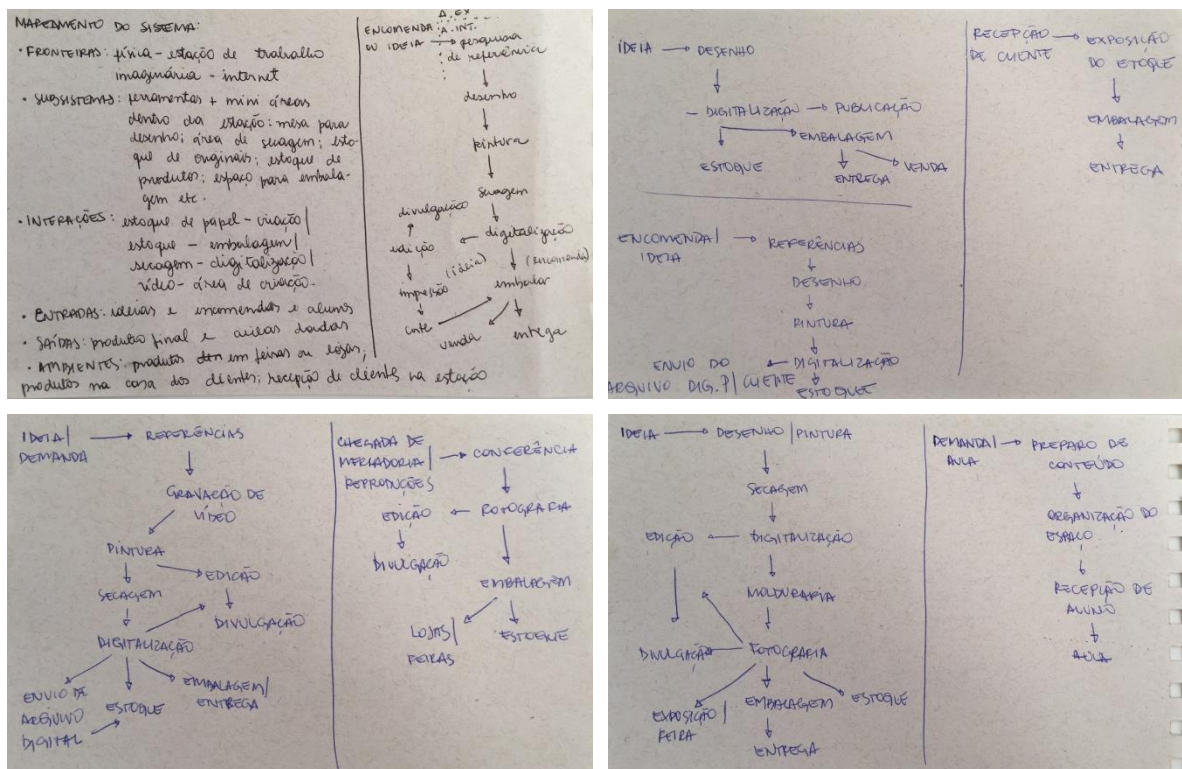 MAPEAMENTO DO SISTEMA:
• FRONTEIRAS: física - estação de trabalho
imaginária - internet
• SUBSISTEMAS: ferramentas + mini áreas
dentro da estação: mesa para
desenho; área de secagem; esto-
que de originais; estoque de
produtos; espaço para embala-
gem etc.
• INTERAÇÕES: estoque de papel - criação/
estoque - embalagem/
secagem - digitalização/
vídeo - área de criação.
• ENTRADAS: ideias e encomendas e alunos
• SAÍDAS: produto final e aulas dadas
• AMBIENTES: produtos em feiras ou lojas,
produtos na casa dos clientes; recepção de clientes na estação
A. EX
ENCOMENDA A. INT.
OU IDEIA → pesquisa
de referência
desenho
pintura
secagem
divulgação
digitalização
edição
(ideia) (encomenda)
impressão
embalar
corte
venda
entrega
IDEIA → DESENHO
- DIGITALIZAÇÃO → PUBLICAÇÃO
EMBALAGEM
ESTOQUE
ENTREGA
VENDA
ENCOMENDA/ → REFERÊNCIAS
IDEIA
DESENHO
PINTURA
ENVIO DO ← DIGITALIZAÇÃO
ARQUIVO DIG. P/ CLIENTE
ESTOQUE
RECEPÇÃO → EXPOSIÇÃO
DE CLIENTE DO ETOQUE
EMBALAGEM
ENTREGA
IDEIA/ → REFERÊNCIAS
DEMANDA
GRAVAÇÃO DE
VÍDEO
PINTURA
EDIÇÃO
SECAGEM
DIVULGAÇÃO
DIGITALIZAÇÃO
ENVIO DE
ARQUIVO
DIGITAL
ESTOQUE
EMBALAGEM/
ENTREGA
CHEGADA DE
MERCADORIA/ → CONFERÊNCIA
REPRODUÇÕES
EDIÇÃO ← FOTOGRAFIA
DIVULGAÇÃO
EMBALAGEM
LOJAS/
FEIRAS
ESTOQUE
IDEIA → DESENHO/PINTURA
SECAGEM
EDIÇÃO ← DIGITALIZAÇÃO
MOLDURARIA
DIVULGAÇÃO
FOTOGRAFIA
EXPOSIÇÃO/
FEIRA
EMBALAGEM
ESTOQUE
ENTREGA
DEMANDA/ → PREPARO DE
AULA CONTEÚDO
ORGANIZAÇÃO DO
ESPAÇO
RECEPÇÃO DE
ALUNO
AULA